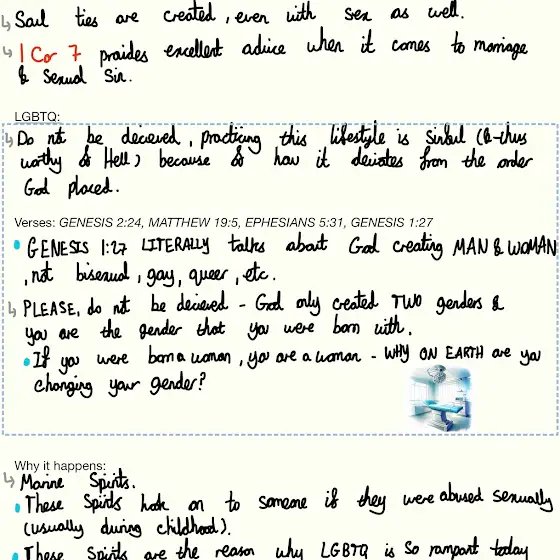 ↳ Soul ties are created, even with sex as well.
↳ 1 Cor 7 provides excellent advice when it comes to marriage
& Sexual Sin.
LGBTQ:
↳ Do not be decieved, practicing this lifestyle is sinful (& thus
worthy of Hell) because of how it deviates from the order
God placed.
Verses: GENESIS 2:24, MATTHEW 19:5, EPHESIANS 5:31, GENESIS 1:27
• GENESIS 1:27 LITERALLY talks about God creating MAN & WOMAN
, not bisexual, gay, queer, etc.
↳ PLEASE, do not be decieved - God only created TWO genders &
you are the gender that you were born with.
• If you were born a woman, you are a woman - WHY ON EARTH are you
changing your gender?
Why it happens:
↳ Marine Spirits.
• These Spirits hook on to someone if they were abused sexually
(usually during childhood).
• These Spirits are the reason why LGBTQ is so rampant today